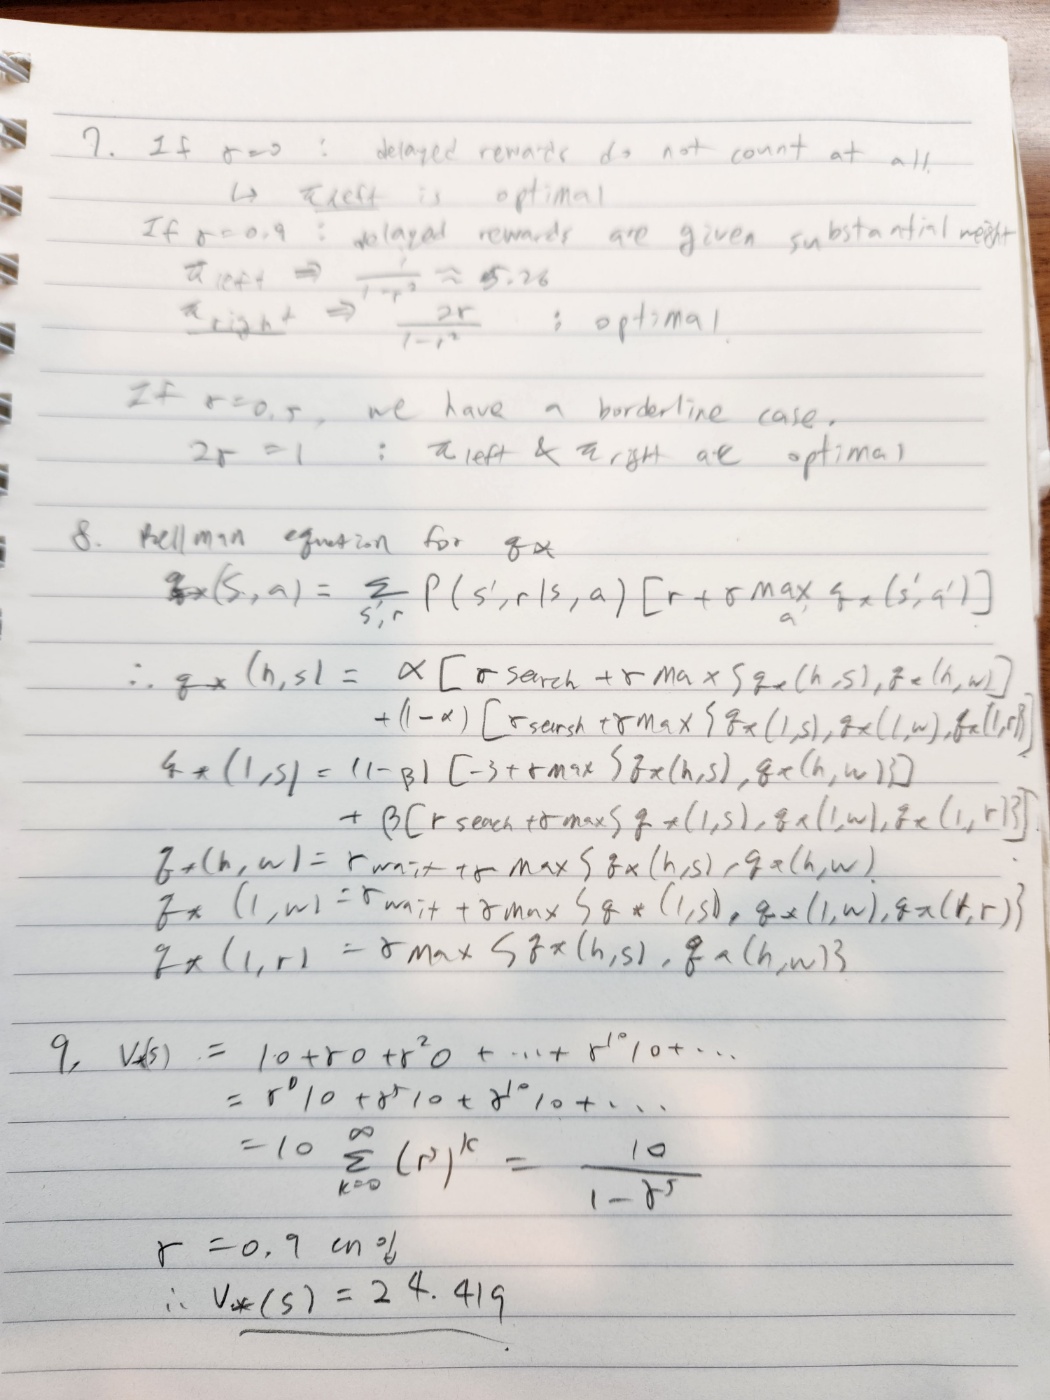 7. If γ=0 : delayed rewards do not count at all.
↳ π left is optimal
If γ=0.9 : delayed rewards are given substantial weight
π left ⇒ 1/(1-γ²) ≈ 5.26
π right ⇒ 2γ/(1-γ²) : optimal.
If γ=0.5, we have a borderline case.
2γ =1 : π left & π right are optimal
8. Bellman equation for q*
q*(s,a) = Σ s',r P(s',r|s,a) [r+γ max a' q*(s',a')]
∴ q*(h,s) = α[r search + γ max {q*(h,s), q*(h,w)]
+(1-α) [r search + γ max {q*(l,s), q*(l,w), q*(l,r)}]
q*(l,s) = (1-β) [-3+γ max {q*(h,s), q*(h,w)}]
+ β[r seach + γ max{q*(l,s), q*(l,w), q*(l,r)}].
q*(h,w) = r wait + γ max {q*(h,s), q*(h,w)
q*(l,w) = r wait + γ max {q*(l,s), q*(l,w), q*(l,r)}
q*(l,r) = γ max {q*(h,s), q*(h,w)}
9, V*(s) = 10+γ0+γ²0 + ...+ γ¹⁰10+...
= γ⁰10 +γ⁵10+ γ¹⁰10+...
=10 Σ k=0 ∞ (γ⁵)^k = 10/(1-γ⁵)
γ =0.9
∴ V*(s) = 24.419